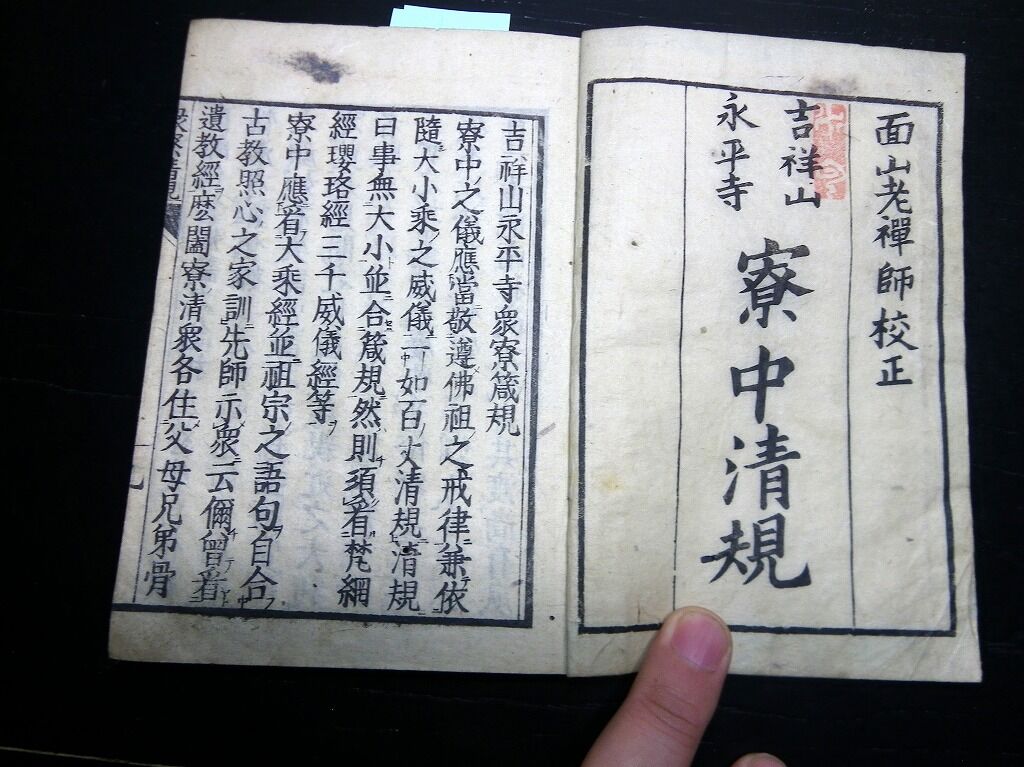 面山老禪師校正
吉祥山
永平寺
寮中清規
吉祥山永平寺衆寮箴規
寮中之儀應當敬遵佛祖之戒律兼依
隨大小乘之威儀一如百丈清規清規
曰事無大小並合箴規然則須看梵網
經瓔珞經三千威儀經等
寮中應看大乘經並祖宗之語句自合
古教照心之家訓先師示衆云儞曾看
遺教經麽闔寮清衆各住父母兄弟骨